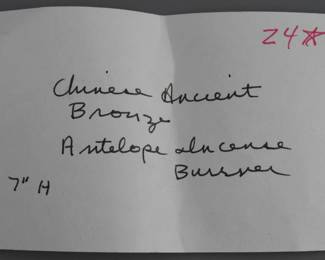 24☆
Chinese Ancient
Bronze
Antelope Incense
Burner
7" H